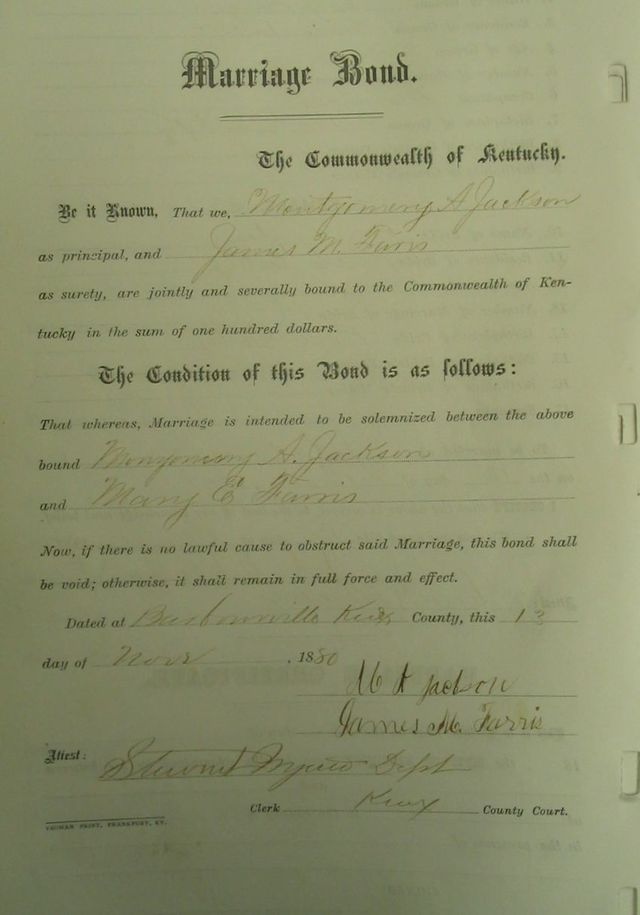 Marriage Bond.
The Commonwealth of Kentucky.
Be it Known, That we, Montgomery A Jackson
as principal, and James M. Farris
as surety, are jointly and severally bound to the Commonwealth of Ken-
tucky in the sum of one hundred dollars.
The Condition of this Bond is as follows:
That whereas, Marriage is intended to be solemnized between the above
bound Montgomery A. Jackson
and Mary E Farris
Now, if there is no lawful cause to obstruct said Marriage, this bond shall
be void; otherwise, it shall remain in full force and effect.
Dated at Barbourville Knox County, this 13
day of Novr , 1880
M A Jackson
James M. Farris
Attest: Dept
Clerk Knox County Court.
YEOMAN PRINT, FRANKFORT, KY.